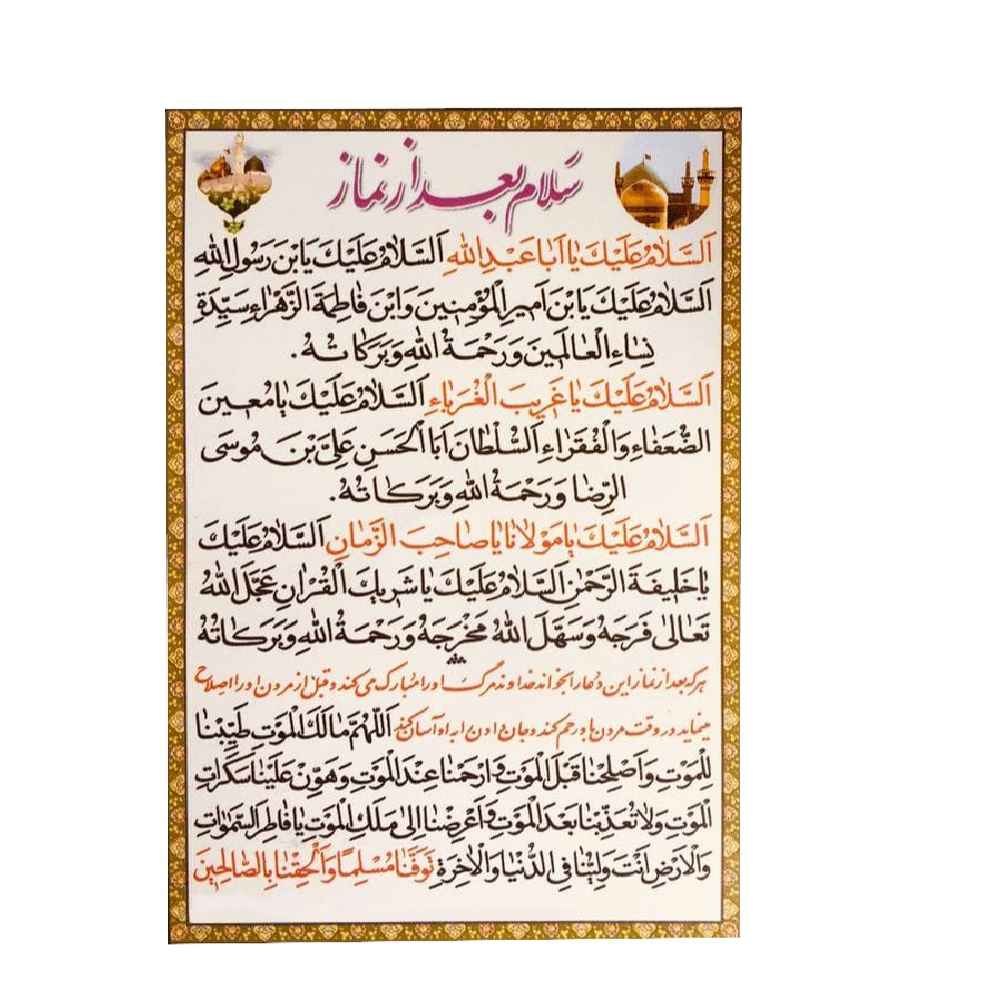 سلام بعد از نماز
اَلسَّلامُ عَلَيْكَ يا اَبا عَبْدِ اللهِ اَلسَّلامُ عَلَيْكَ يَابْنَ رَسُولِ اللهِ
اَلسَّلامُ عَلَيْكَ يَابْنَ اَميرِ الْمُؤْمِنينَ وَابْنَ فاطِمَةَ الزَّهْراءِ سَيِّدَةِ
نِساءِ الْعالَمينَ وَرَحْمَةُ اللهِ وَبَرَكاتُهُ.
اَلسَّلامُ عَلَيْكَ يا غَريبَ الْغُرَباءِ اَلسَّلامُ عَلَيْكَ يا مُعينَ
الضُّعَفاءِ وَالْفُقَراءِ اَلسُّلْطانَ اَبَا الْحَسَنِ عَلِيَّ بْنَ مُوسَى
الرِّضا وَرَحْمَةُ اللهِ وَبَرَكاتُهُ.
اَلسَّلامُ عَلَيْكَ يا مَوْلانا يا صاحِبَ الزَّمانِ اَلسَّلامُ عَلَيْكَ
يا خَليفَةَ الرَّحْمٰنِ اَلسَّلامُ عَلَيْكَ يا شَريكَ الْقُرْانِ عَجَّلَ اللهُ
تَعالىٰ فَرَجَهُ وَسَهَّلَ اللهُ مَخْرَجَهُ وَرَحْمَةُ اللهِ وَبَرَكاتُهُ
هر که بعد از نماز این دعا را بخواند خداوند مرگ را بر او مبارک می کند و قبل از مردن او را اصلاح
مینماید و در وقت مردن با و رحم کند و جان دادن را به او آسان کند اَللّٰهُمَّ مالِكَ الْمَوْتِ طَيِّبْنا
لِلْمَوْتِ وَاَصْلِحْنا قَبْلَ الْمَوْتِ وَارْحَمْنا عِنْدَ الْمَوْتِ وَهَوِّنْ عَلَيْنا سَكَراتِ
الْمَوْتِ وَلا تُعَذِّبْنا بَعْدَ الْمَوْتِ وَاَعْرِضْنا اِلىٰ مَلَكِ الْمَوْتِ يا فاطِرَ السَّمٰواتِ
وَالْاَرْضِ اَنْتَ وَلِيُّنا فِي الدُّنْيا وَالْاخِرَةِ تَوَفَّنا مُسْلِمًا وَاَلْحِقْنا بِالصّالِحينَ